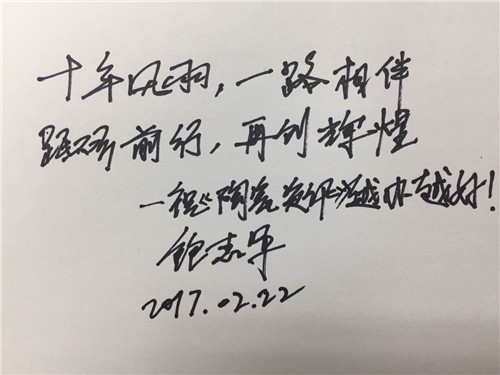 十年风雨,一路相伴
踔厉前行,再创辉煌
一祝《陶瓷资讯》越办越好!
鲍志军
2017.02.22